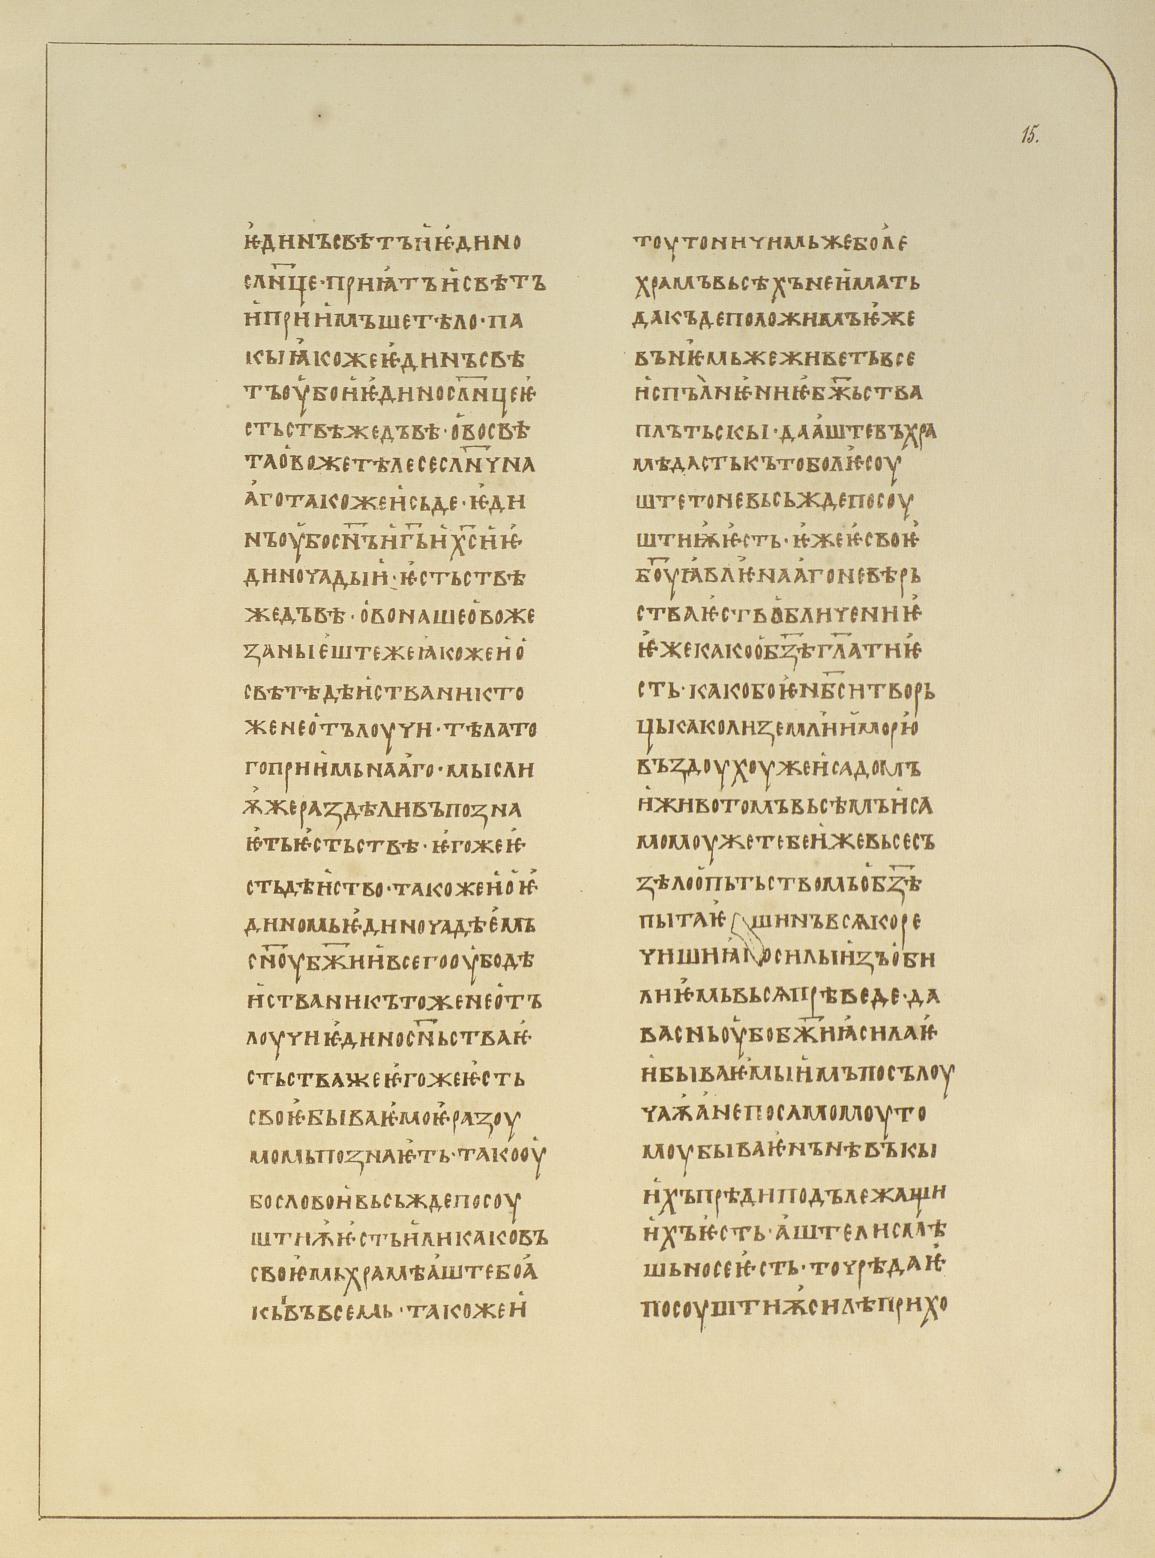 15.
ѥ҆динъсвѣтъи҆ѥ҆дино
сл҃нце·приꙗ҆тъи҆свѣтъ
и҆при҆и҆мъшетѣло·па
кыꙗ҆коже·ѥ҆динъсвѣ
тъоу҆бои҆ѥ҆диносл҃нцеѥ҆
стьствѣжедъвѣ·о҆восвѣ
тао҆вожетѣлесесл҃нчна
а҆готакожеи҆сьде·ѥ҆ди
нъоу҆босн҃ъи҆г҃ьи҆х҃си҆ѥ҆
диночадыи҆·ѥ҆стьствѣ
жедъвѣ·о҆вонашео҆воже
заныѥ҆штежеꙗ҆кожеи҆о҆
свѣтѣдѣи҆стваникто
женео҆тълоучи·тѣлато
гоприи҆мьнаа҆го·мысли
ѭ҆жераздѣливъпозна
ѥ҆тьѥ҆стьствѣ·ѥ҆гожеѥ҆
стьдѣи҆ство·такожеи҆о҆ѥ҆
диномьѥ҆диночадѣе҆мь
сн҃оу҆бж҃ии҆всегооу҆бодѣ
и҆стваникътоженео҆тъ
лоучиѥ҆диносн҃ьстваѥ҆
стьстважеѥ҆гожеѥ҆сть
своѥ҆бываѥ҆моѥ҆разоу
момьпознаѥ҆ть·такооу҆
бословои҆вьсьждепосоу
штиѭ҆ѥ҆стьи҆ликаковъ
своѥ҆мьхрамѣа҆штебоꙗ҆
кыв҆ъвсемь·такожеи҆
тоутоничимьжебо҆ле
храмъвьсѣхънеи҆мать
дакъдеположимъѥ҆же
въниѥ҆мьжеживетьвсе
и҆спълниѥ҆ниѥ҆бж҃ьства
плътьскы·даа҆штевъхра
мѣдастькътоболѥ҆соу
штетоневьсьждепосоу
штиѭ҆ѥ҆сть·ѥ҆жеѥ҆своѥ҆
б҃оуꙗ҆влѥ҆наа҆гоневѣрь
стваѥ҆стьо҆бличениѥ҆
ѥ҆жекакоо҆бз҃ѣгл҃атиѥ҆
сть·какобоѥ҆нб҃ситворь
цыкаколиземлиѝморю҆
въздоухоужеи҆садомъ
и҆животомъвьсѣмъи҆са
момоужетебеи҆жевьсесъ
зѣлоо҆пьтьствомьо҆бз҃ѣ
пытаѥ҆шинъвсꙗкоре
чишиꙗ҆косилыи҆зъо҆би
лиѥ҆мьвьсѧпрѣведе·да
васньоу҆бобж҃иꙗ҆силаѥ҆
и҆бываѥ҆мыи҆мъпосълоу
чаѭ҆а҆непосамомоуто
моубываѥ҆нънѣвъкы
и҆хъпрѣдиподълежашти
и҆хъѥ҆сть·а҆штелисмѣ
шьносеѥ҆сть·точрѣдаѥ҆
посоуштиѭ҆силѣприхо